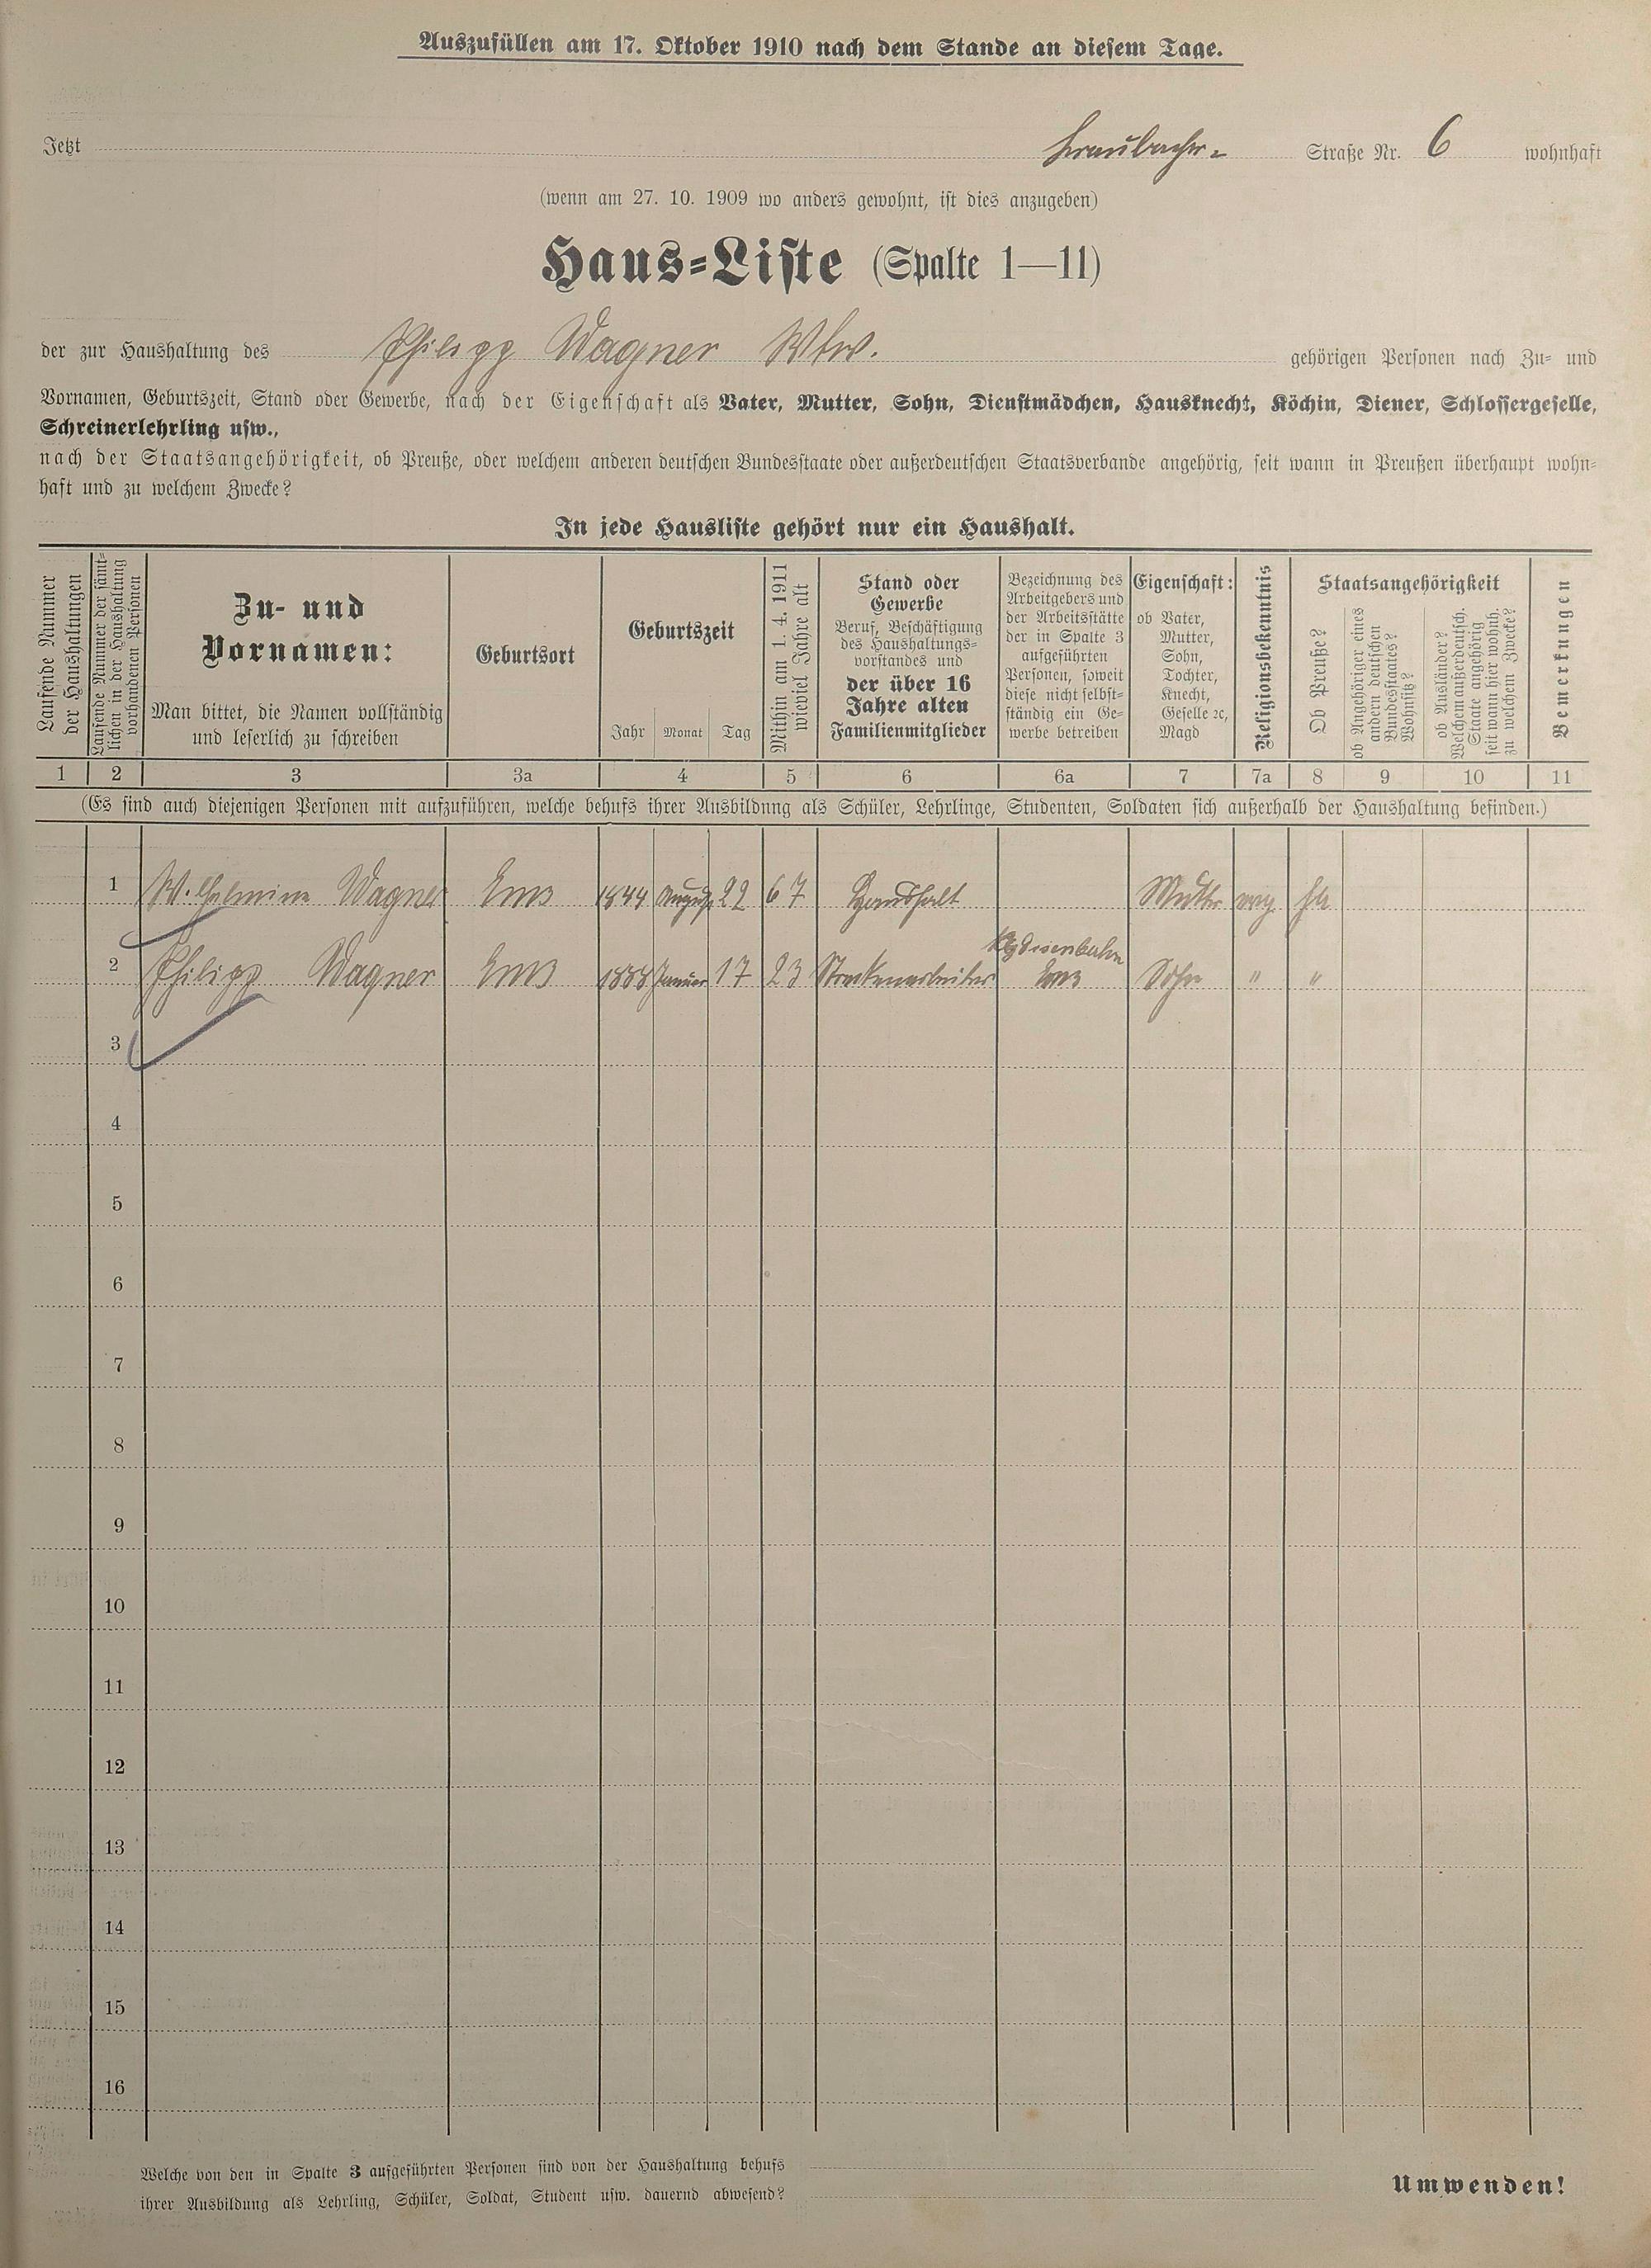 Auszufüllen am 17. Oktober 1910 nach dem Stande an diesem Tage.
Jetzt Straße Nr. 6 wohnhaft
(wenn am 27. 10. 1909 wo anders gewohnt, ist dies anzugeben)
Haus=Liste (Spalte 1—11)
der zur Haushaltung des Philipp Wagner Wtw. gehörigen Personen nach Zu= und
Vornamen, Geburtszeit, Stand oder Gewerbe, nach der Eigenschaft als Vater, Mutter, Sohn, Dienstmädchen, Hausknecht, Köchin, Diener, Schlossergeselle,
Schreinerlehrling usw.,
nach der Staatsangehörigkeit, ob Preuße, oder welchem anderen deutschen Bundesstaate oder außerdeutschen Staatsverbande angehörig, seit wann in Preußen überhaupt wohn=
haft und zu welchem Zwecke?
In jede Hausliste gehört nur ein Haushalt.
Laufende Nummer
der Haushaltungen
Laufende Nummer der sämt=
lichen in der Haushaltung
vorhandenen Personen
Zu- und
Vornamen:
Man bittet, die Namen vollständig
und leserlich zu schreiben
Geburtsort
Geburtszeit
Jahr Monat Tag
Mithin am 1. 4. 1911
wieviel Jahre alt
Stand oder
Gewerbe
Beruf, Beschäftigung
des Haushaltungs=
vorstandes und
der über 16
Jahre alten
Familienmitglieder
Bezeichnung des
Arbeitgebers und
der Arbeitsstätte
der in Spalte 3
aufgeführten
Personen, soweit
diese nicht selbst=
ständig ein Ge=
werbe betreiben
Eigenschaft:
ob Vater,
Mutter,
Sohn,
Tochter,
Knecht,
Geselle ꝛc,
Magd
Religionsbekenntnis
Staatsangehörigkeit
Ob Preuße?
ob Angehöriger eines
andern deutschen
Bundesstaates?
Wohnsitz?
ob Ausländer?
Welchem außerdeutsch.
Staate angehörig
seit wann hier wohnh.
zu welchem Zwecke?
Bemerkungen
1 2 3 3a 4 5 6 6a 7 7a 8 9 10 11
(Es sind auch diejenigen Personen mit aufzuführen, welche behufs ihrer Ausbildung als Schüler, Lehrlinge, Studenten, Soldaten sich außerhalb der Haushaltung befinden.)
1 Wilhelmine Wagner Ems 1844 August 22 67 Haushalt Mutter evg. Ja
2 Philipp Wagner Ems 1888 Januar 17 23 Streckenarbeiter Kg Eisenbahn Ems Sohn " "
3
4
5
6
7
8
9
10
11
12
13
14
15
16
Welche von den in Spalte 3 aufgeführten Personen sind von der Haushaltung behufs
ihrer Ausbildung als Lehrling, Schüler, Soldat, Student usw. dauernd abwesend?
Umwenden!